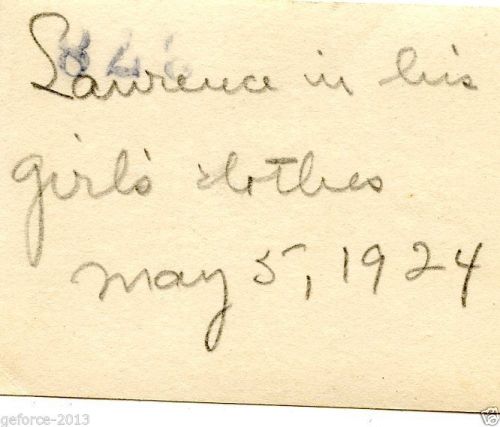 Lawrence in his
girl's clothes
May 5, 1924
geforce-2013